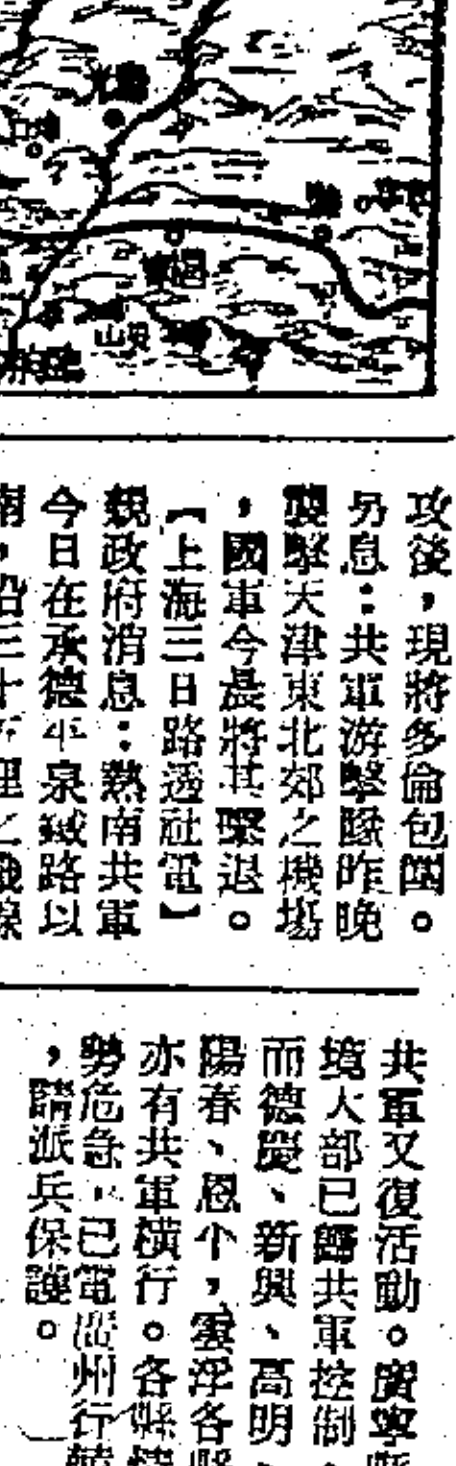 攻後，現將多倫包圍。
另息：共軍游擊隊昨晚
襲擊天津東北郊之機場
，國軍今晨將其擊退。
【上海三日路透社電】
親政府消息：熱南共軍
今日在承德平泉鐵路以
南，沿三十五哩之戰線
共軍又復活動。廣寧縣
境大部已歸共軍控制，
而德慶、新興、高明、
陽春、恩平，雲浮各縣
亦有共軍橫行。各縣情
勢危急，已電廣州行轅
，請派兵保護。